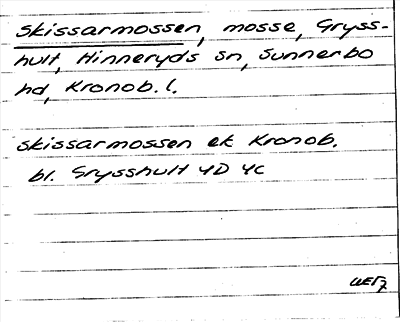 Skissarmossen, mosse, Gryss-
hult, Hinneryds sn, Sunnerbo
hd, Kronob. l.
Skissarmossen ek Kronob.
bl. Grysshult 4D 4c